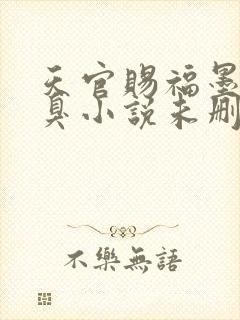 天官賜福墨
臭小説未删
不樂無語